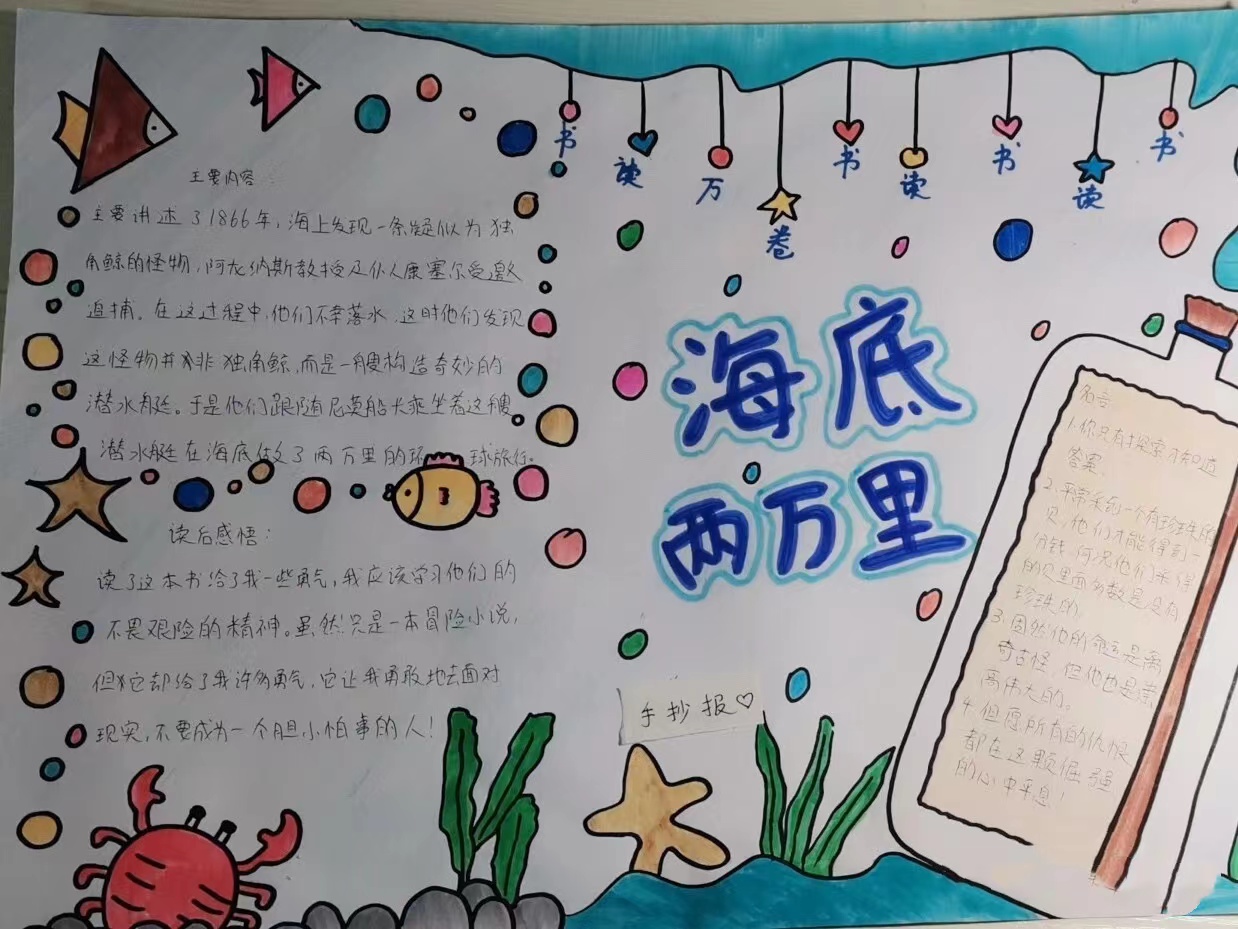 书读万卷书读书读书
海底
两万里
主要内容
主要讲述了1866年,海上发现一条疑似为独
角鲸的怪物,阿龙纳斯教授及仆人康塞尔受邀
追捕。在这过程中,他们不幸落水,这时他们发现
这怪物并非独角鲸,而是一艘构造奇妙的
潜水艇。于是他们跟随尼莫船长乘坐着这艘
潜水艇在海底做了两万里的环球旅行。
读后感悟:
读了这本书给了我一些勇气,我应该学习他们的
不畏艰险的精神。虽然只是一本冒险小说,
但它却给了我许多勇气,它让我勇敢地去面对
现实,不要成为一个胆小怕事的人!
手抄报♡
名言
1.你只有探索才知道
答案。
2.平常采到一个有珍珠的
贝,他们才能得到一
分钱,何况他们采得
的贝里面多数是没有
珍珠的。
3.固然他的命运是离
奇古怪,但他也是崇
高伟大的。
4.但愿所有的仇恨
都在这颗倔强
的心中平息!